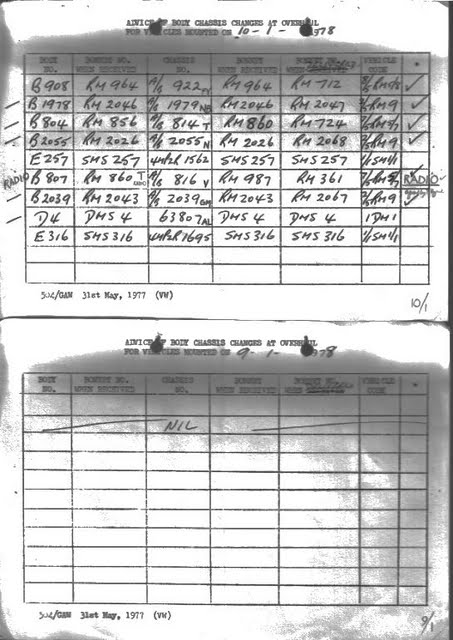 ADVICE OF BODY CHASSIS CHANGES AT OVERHAUL
FOR VEHICLES MOUNTED ON 10-1-1978
BODY NO. BONNET NO. WHEN RECEIVED CHASSIS NO. BONNET BONNET NO. WHEN VEHICLE CODE *
B908 RM 964 A/S 922 FY RM 964 RM 712 ✓
B1978 RM 2046 A/S 1979 NB RM2046 RM 2047 ✓
B804 RM 856 A/S 814 T RM 860 RM 724 ✓
B2055 RM 2026 A/S 2055 N RM 2026 RM 2068 ✓
E257 SMS 257 1562 SMS 257 SMS 257
RADIO B807 RM 860 T A/S 816 V RM 987 RM 361 RADIO
B2039 RM 2043 A/S 2039 GM RM 2043 RM 2067 ✓
D4 DMS 4 63807 AL DMS 4 DMS 4 1DM1
E316 SMS 316 1695 SMS 316 SMS 316
502/GAW 31st May, 1977 (VW)
10/1
ADVICE OF BODY CHASSIS CHANGES AT OVERHAUL
FOR VEHICLES MOUNTED ON 9-1-1978
BODY NO. BONNET NO. WHEN RECEIVED CHASSIS NO. BONNET BONNET NO. WHEN VEHICLE CODE *
NIL
502/GAW 31st May, 1977 (VW)
9/1